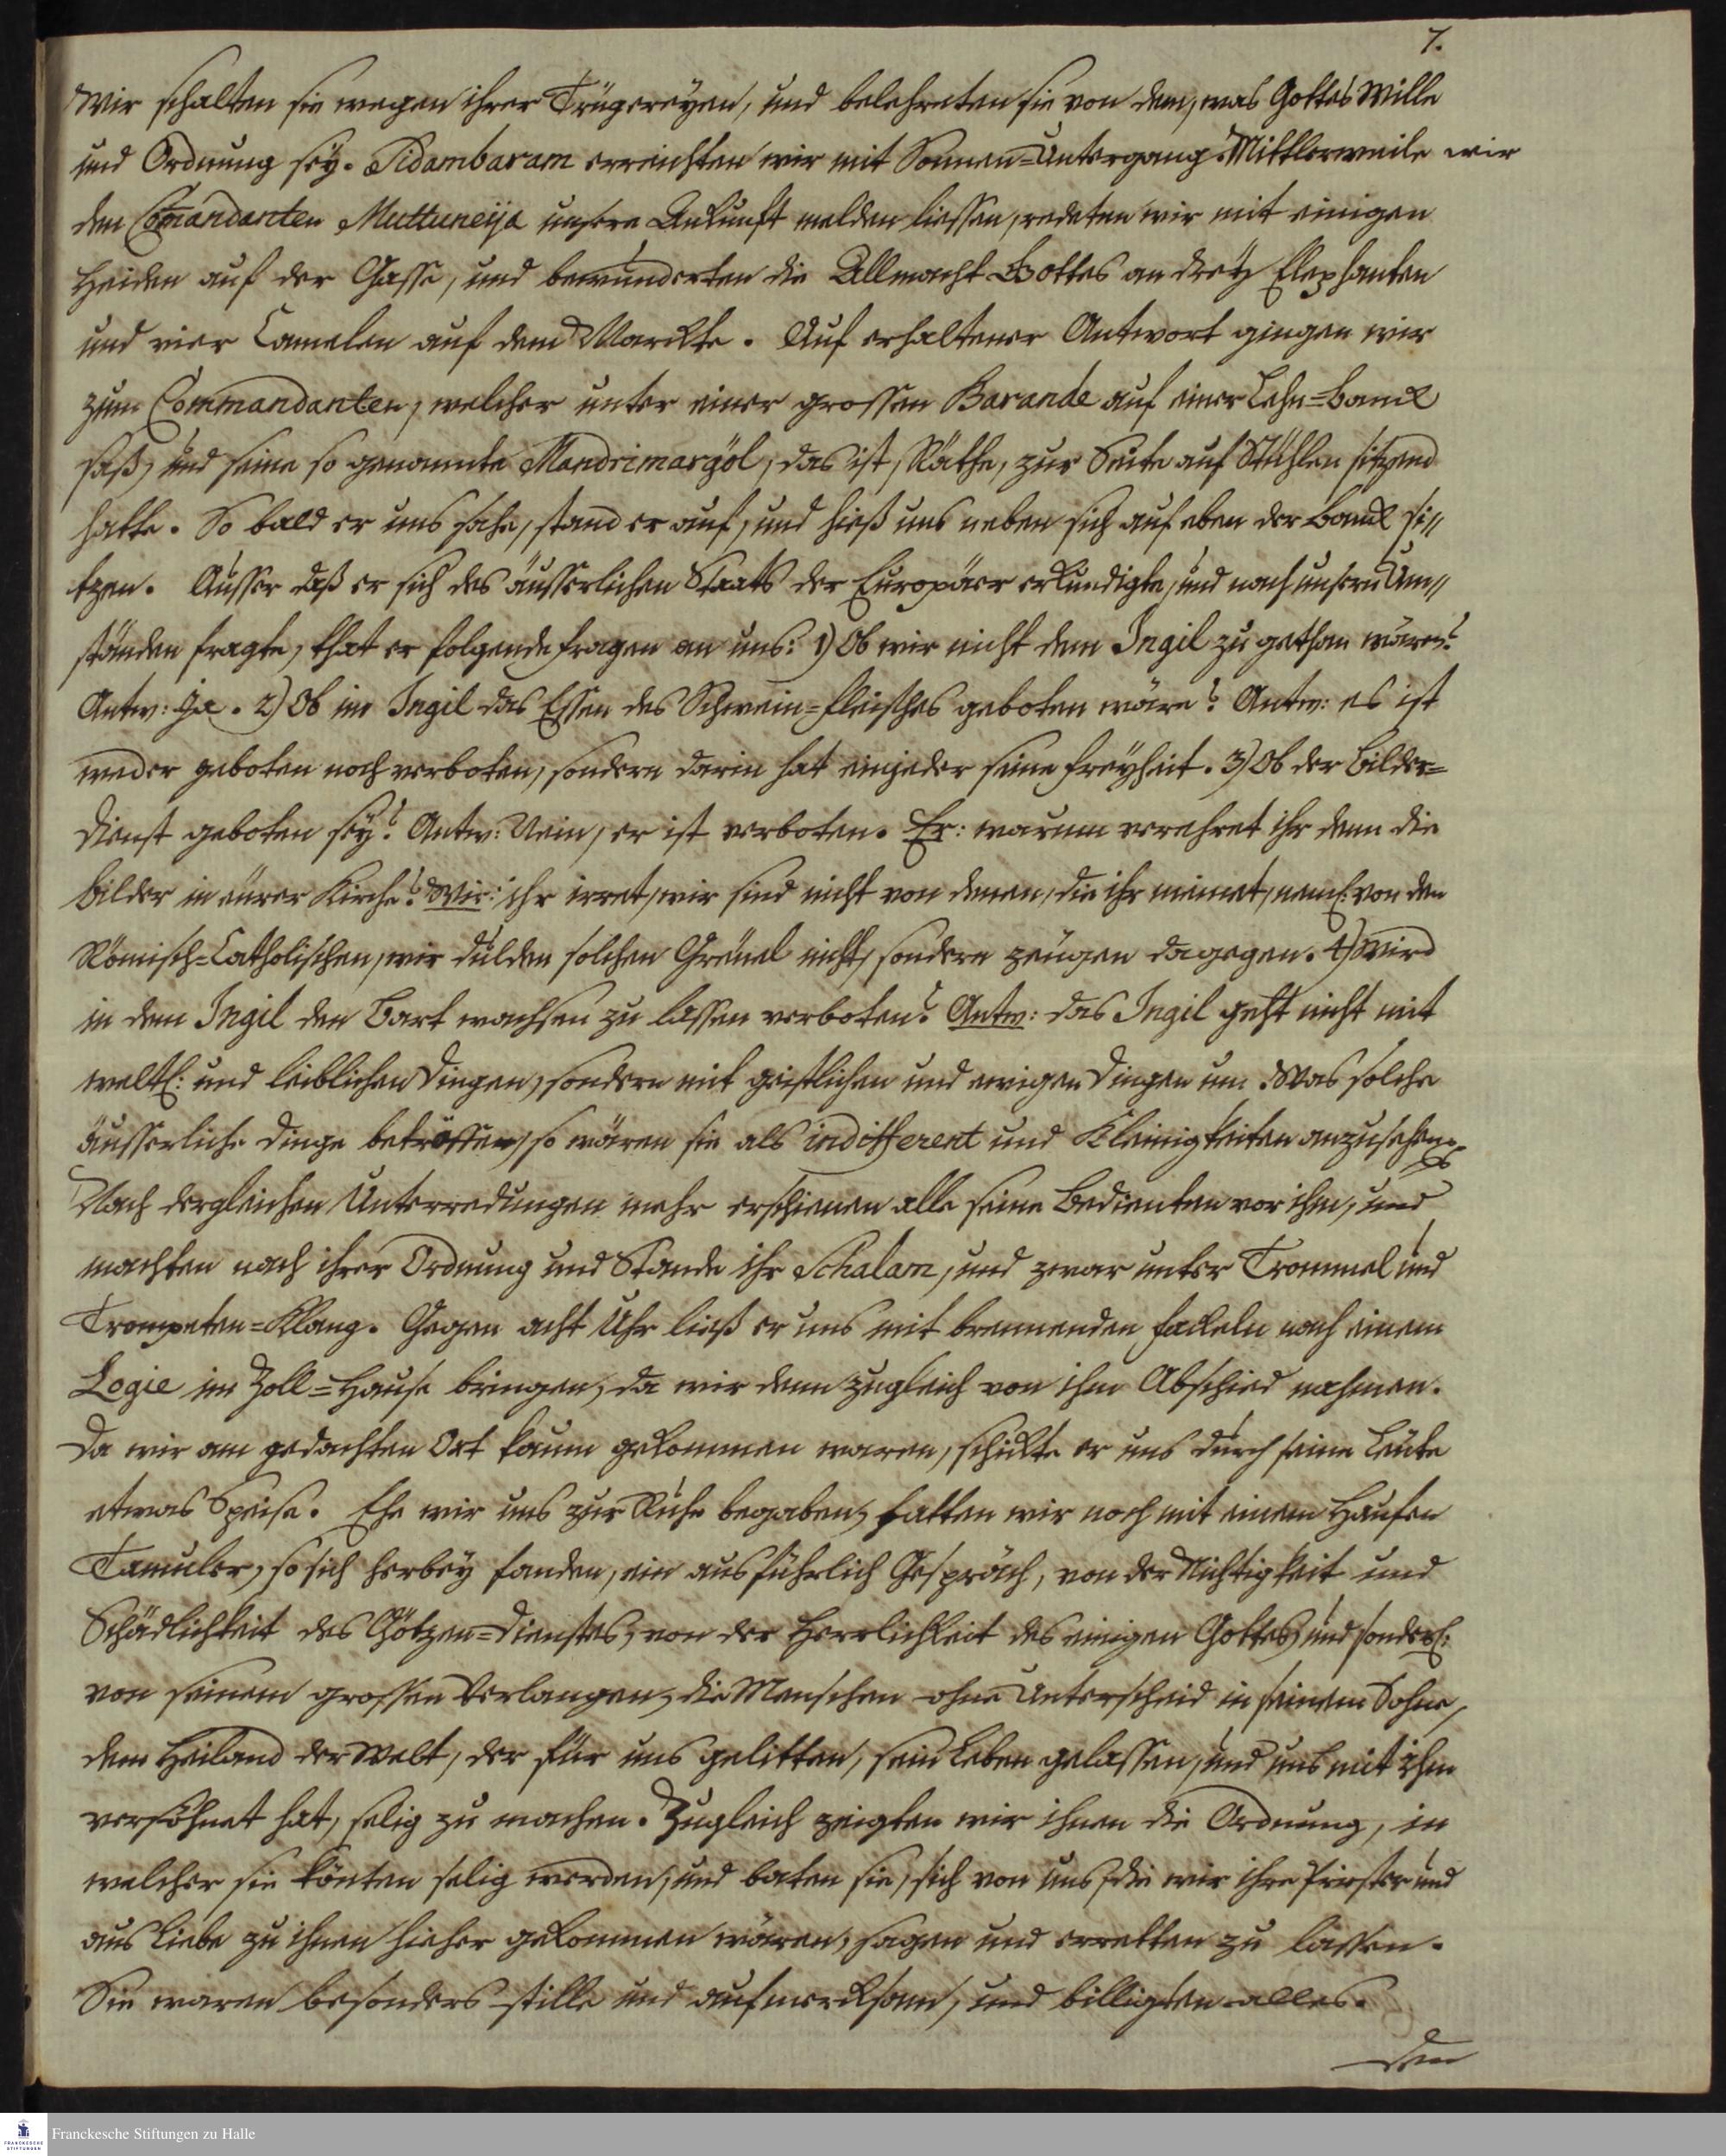 7.
Wir schalten sie wegen ihrer Trügereyen, und belehreten sie von dem, was Gottes Wille
und Ordnung sey. Sidambaram erreichten wir mit Sonnen-Untergang. Mittlerweile wir
dem Comandanten Muttuneija unsere Ankunft melden liessen, redeten wir mit einigen
Heiden auf der Gasse, und bewunderten die Allmacht Gottes an drey Elephanten
und vier Camelen auf dem Marckte. Auf erhaltener Antwort gingen wir
zum Commandanten, welcher unter einer grossen Barande auf einer Lehn=Banck
saß, und seine so genannte Mandrimargöl, das ist, Räthe, zur Seite auf Stühlen sitzend
hatte. So bald er uns sahe, stand er auf, und hieß uns neben sich auf eben der Banck si//
tzen. Ausser daß er sich des äusserlichen Staats der Europäer erkundigte, und nach unsern Um//
ständen fragte, that er folgende Fragen an uns: 1) Ob wir nicht dem Ingil zugethan wären?
Antw: Ja. 2) Ob im Ingil das Essen des Schwein=Fleisches geboten wäre? Antw: es ist
weder geboten noch verboten, sondern darin hat einjeder seine Freyheit. 3) Ob der Bilder=
dienst geboten sey? Antw: Nein, er ist verboten. Er: warum verehret ihr denn die
Bilder in eurer Kirche? Wir: ihr irret, wir sind nicht von denen, die ihr meinet, neml: von den
Römisch=Catholischen, wir dulden solchen Greuel nicht, sondern zeugen dagegen. 4) Wird
in dem Ingil den Bart wachsen zu lassen verboten? Antw: das Ingil geht nicht mit
weltl: und leiblichen Dingen, sondern mit geistlichen und ewigen Dingen um. Was solche
äusserliche Dinge beträffen, so wären sie als indifferent und Kleinigkeiten anzusehen.
Nach dergleichen Unterredungen mehr erschienen alle seine Bedienten vor ihm, und
machten nach ihrer Ordnung und Stande ihr Schalam, und zwar unter Trommel und
Trompeten=Klang. Gegen acht Uhr ließ er uns mit brennenden Fackeln nach einem
Logie im Zoll=Hause bringen, da wir denn zugleich von ihm Abschied nahmen.
Da wir am gedachten Ort kaum gekommen waren, schickte er uns durch seine Leute
etwas Speise. Ehe wir uns zur Ruhe begaben, hatten wir noch mit einem Haufen
Tamuler, so sich herbey fanden, ein ausführlich Gespräch, von der Nichtigkeit und
Schädlichkeit des Götzen=Dienstes, von der Herrlichkeit des einigen Gottes, und sonderl:
von seinem grossen Verlangen, die Menschen ohne Unterscheid in seinem Sohne,
dem Heiland der Welt, der für uns gelitten, sein Leben gelassen, und uns mit ihm
versöhnet hat, selig zu machen. Zugleich zeigten wir ihnen die Ordnung, in
welcher sie könten selig werden, und baten sie, sich von uns, die wir ihre Priester und
aus Liebe zu ihnen hieher gekommen wären, sagen und erretten zu lassen.
Sie waren besonders stille und aufmercksam, und billigten alles.
Den
Franckesche Stiftungen zu Halle